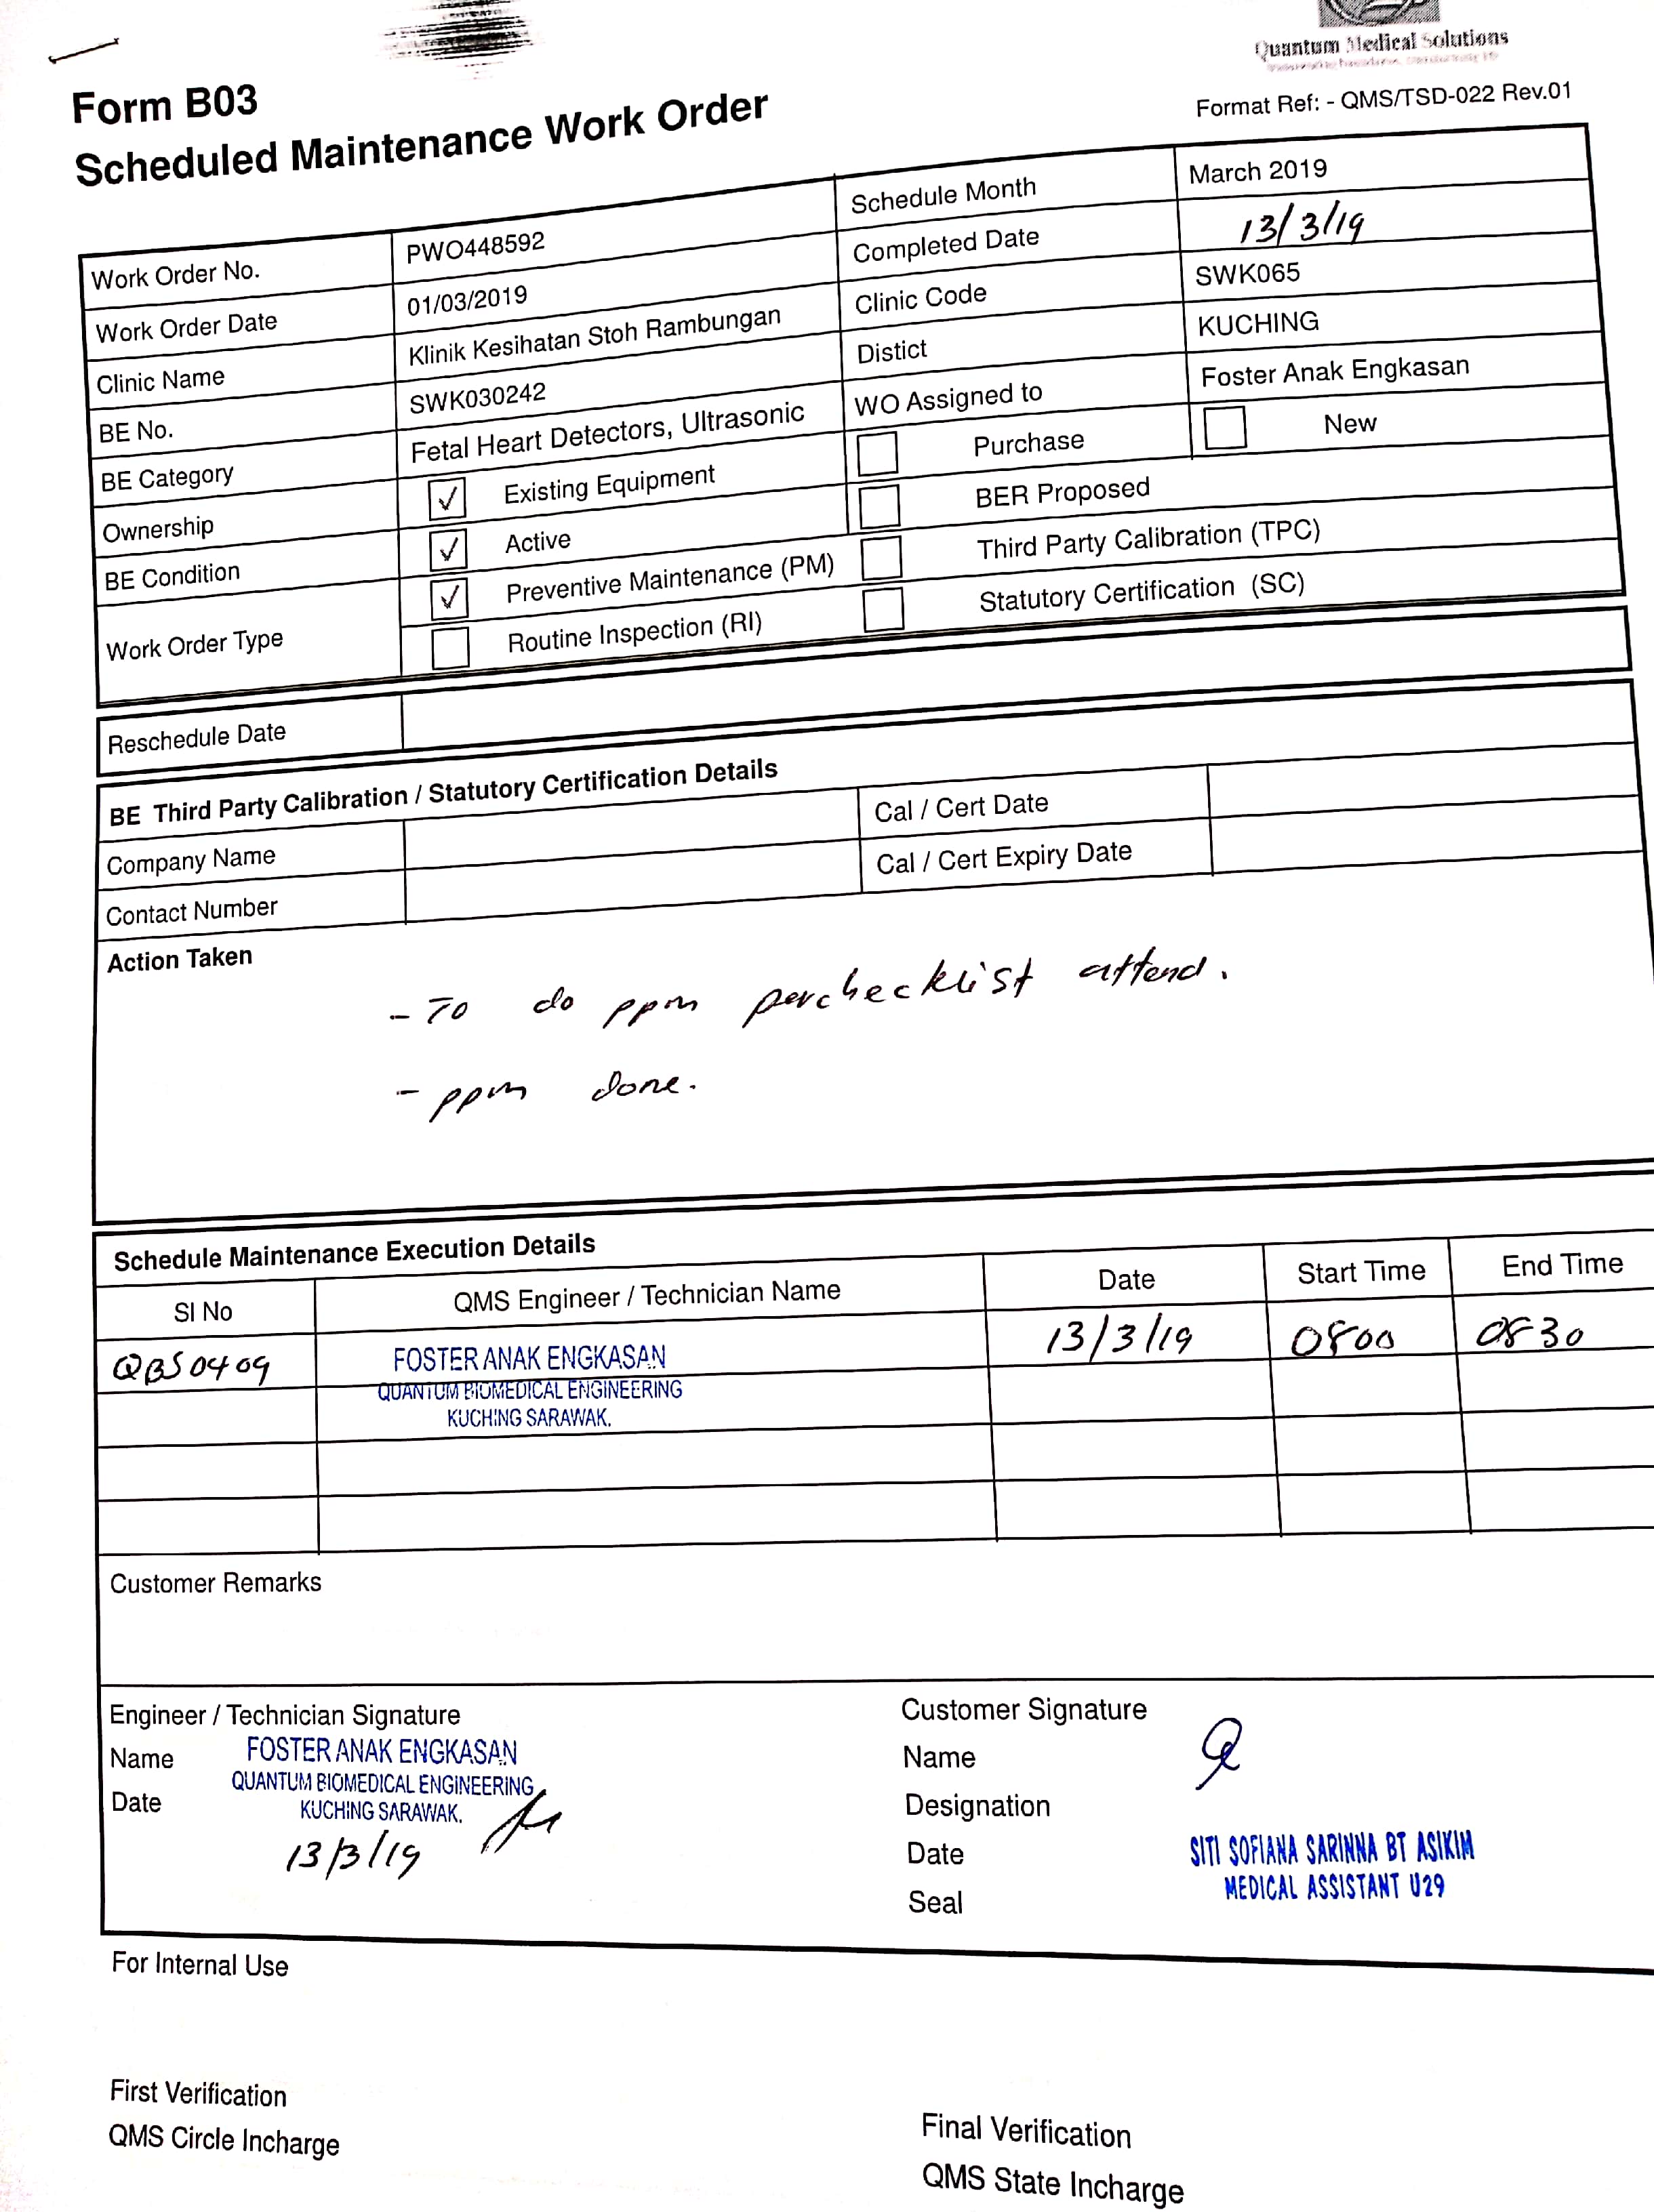 Quantum Medical Solutions
Form B03
Format Ref: - QMS/TSD-022 Rev.01
Scheduled Maintenance Work Order
Work Order No. PWO448592 Schedule Month March 2019
Work Order Date 01/03/2019 Completed Date 13/3/19
Clinic Name Klinik Kesihatan Stoh Rambungan Clinic Code SWK065
BE No. SWK030242 Distict KUCHING
BE Category Fetal Heart Detectors, Ultrasonic WO Assigned to Foster Anak Engkasan
Ownership ✓ Existing Equipment Purchase New
BE Condition ✓ Active BER Proposed
Work Order Type ✓ Preventive Maintenance (PM) Third Party Calibration (TPC)
Routine Inspection (RI) Statutory Certification (SC)
Reschedule Date
BE Third Party Calibration / Statutory Certification Details
Company Name Cal / Cert Date
Contact Number Cal / Cert Expiry Date
Action Taken
- To do ppm perchecklist attend.
- ppm done.
Schedule Maintenance Execution Details
SI No QMS Engineer / Technician Name Date Start Time End Time
QBS0409 FOSTER ANAK ENGKASAN 13/3/19 0800 0830
QUANTUM BIOMEDICAL ENGINEERING
KUCHING SARAWAK.
Customer Remarks
Engineer / Technician Signature Customer Signature
Name FOSTER ANAK ENGKASAN Name
QUANTUM BIOMEDICAL ENGINEERING
Date KUCHING SARAWAK. Designation
13/3/19 Date SITI SOFIANA SARINNA BT ASIKIM
MEDICAL ASSISTANT U29
Seal
For Internal Use
First Verification Final Verification
QMS Circle Incharge QMS State Incharge